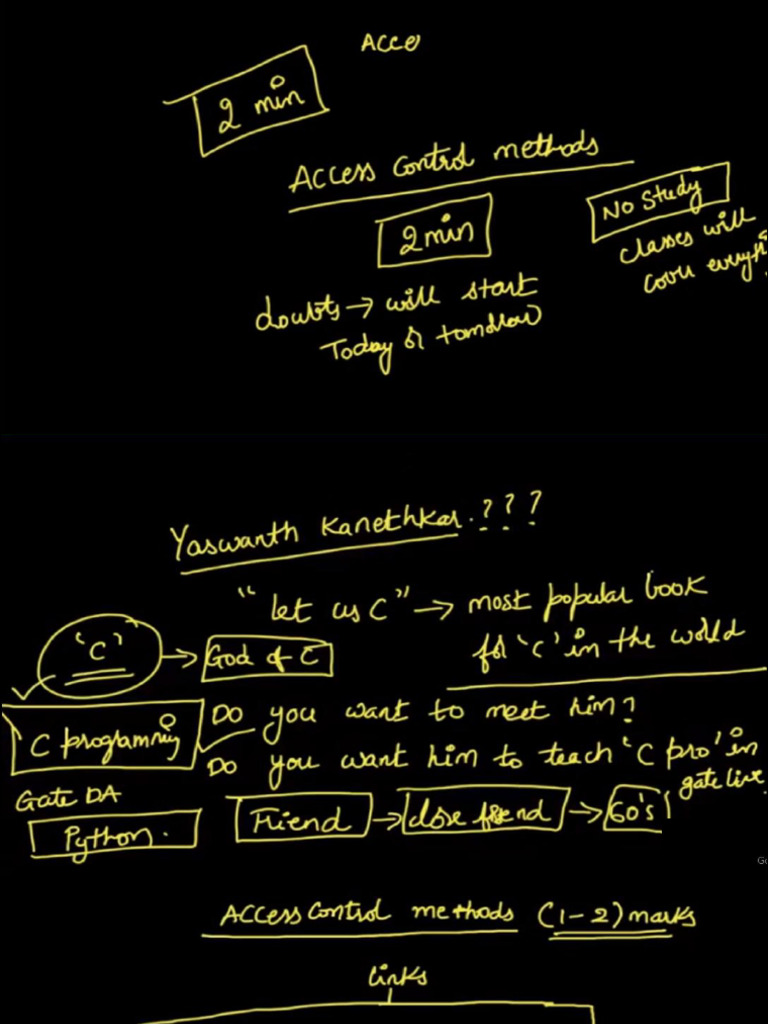 Acce
2 min
Access control methods
2 min
No study
classes will
doubts → will start
Today or tomorrow
Yaswanth Kanethkar.???
"let us C" → most popular book
for 'C' in the world
'C' → God of C
C programming
Do you want to meet him?
Do you want him to teach 'C pro' in
gate live.
Gate DA
Python.
Friend → close friend → 60's
Go
Access Control methods (1-2) marks
links